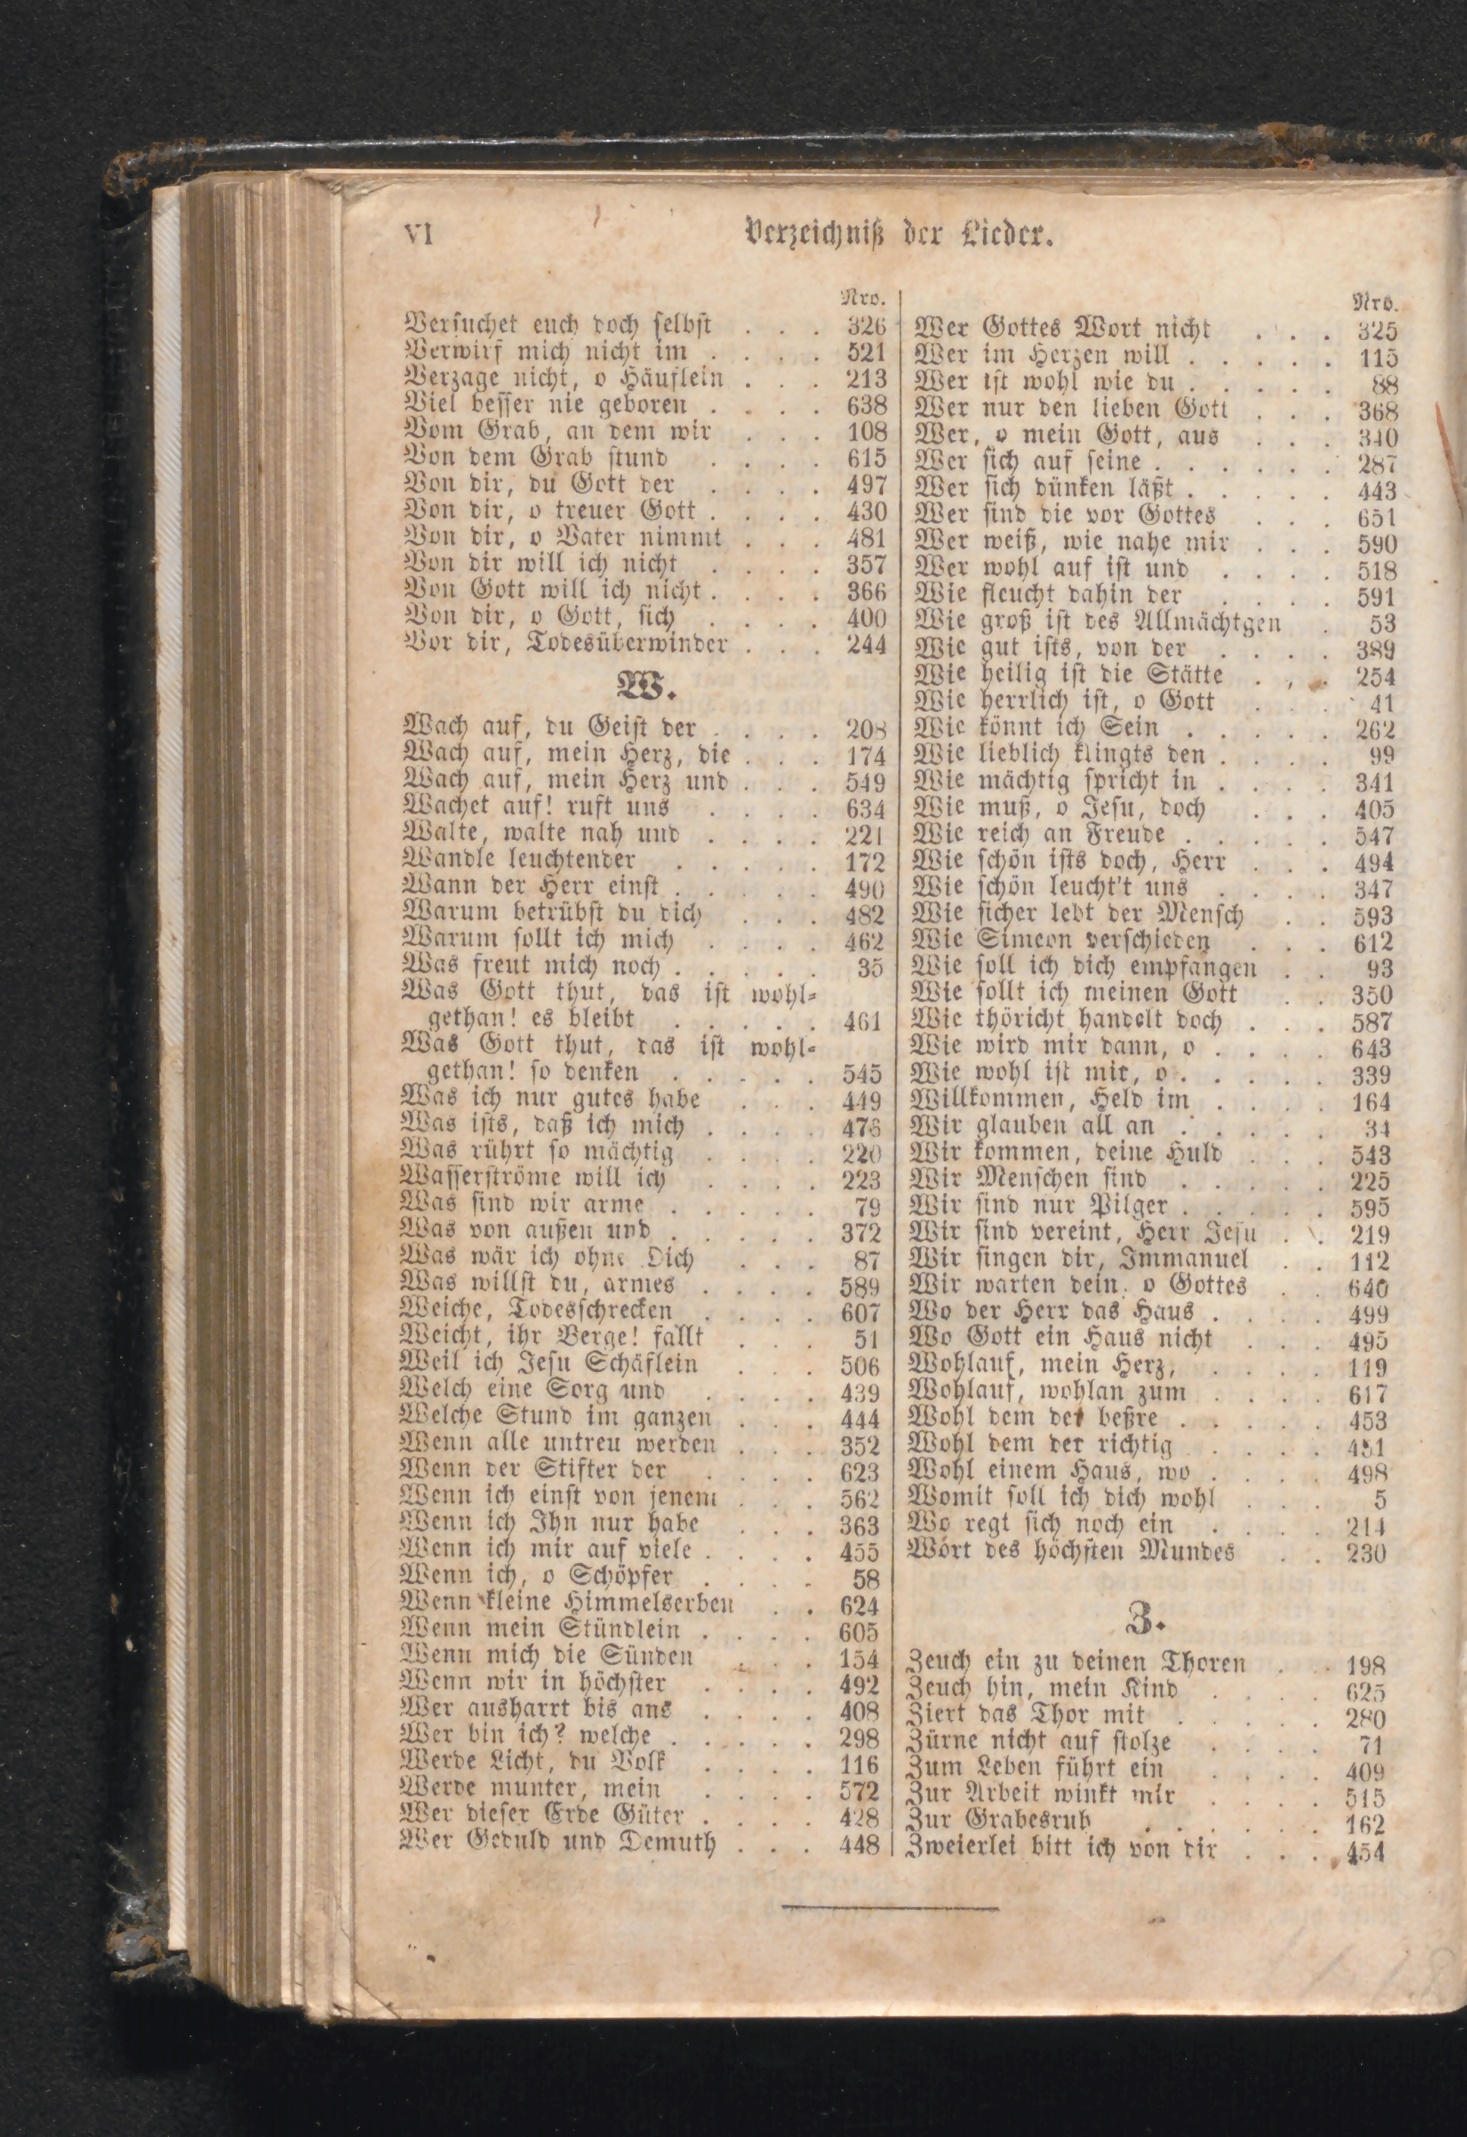 VI
Verzeichniß der Lieder.
Nro.
Versuchet euch doch selbst . . . 326
Verwirf mich nicht im . . . . 521
Verzage nicht, o Häuflein . . . 213
Viel besser nie geboren . . . . 638
Vom Grab, an dem wir . . . 108
Von dem Grab stund . . . . 615
Von dir, du Gott der . . . . 497
Von dir, o treuer Gott . . . . 430
Von dir, o Vater nimmt . . . 481
Von dir will ich nicht . . . . 357
Von Gott will ich nicht . . . . 366
Von dir, o Gott, sich . . . . 400
Vor dir, Todesüberwinder . . . 244
W.
Wach auf, du Geist der . . . . 208
Wach auf, mein Herz, die . . . 174
Wach auf, mein Herz und . . . 549
Wachet auf! ruft uns . . . . 634
Walte, walte nah und . . . . 221
Wandle leuchtender . . . . . 172
Wann der Herr einst . . . . . 490
Warum betrübst du dich . . . 482
Warum sollt ich mich . . . . 462
Was freut mich noch . . . . . 35
Was Gott thut, das ist wohl-
gethan! es bleibt . . . . . 461
Was Gott thut, das ist wohl-
gethan! so denken . . . . . 545
Was ich nur gutes habe . . . 449
Was ists, daß ich mich . . . . 476
Was rührt so mächtig . . . . 220
Wasserströme will ich . . . . 223
Was sind wir arme . . . . . 79
Was von außen und . . . . . 372
Was wär ich ohne Dich . . . 87
Was willst du, armes . . . . 589
Weiche, Todesschrecken . . . . 607
Weicht, ihr Berge! fallt . . . 51
Weil ich Jesu Schäflein . . . 506
Welch eine Sorg und . . . . 439
Welche Stund im ganzen . . . 444
Wenn alle untreu werden . . . 352
Wenn der Stifter der . . . . 623
Wenn ich einst von jenem . . . 562
Wenn ich Ihn nur habe . . . 363
Wenn ich mir auf viele . . . . 455
Wenn ich, o Schöpfer . . . . 58
Wenn kleine Himmelserben . . 624
Wenn mein Stündlein . . . . 605
Wenn mich die Sünden . . . 154
Wenn wir in höchster . . . . 492
Wer ausharrt bis ans . . . . 408
Wer bin ich? welche . . . . . 298
Werde Licht, du Volk . . . . 116
Werde munter, mein . . . . 572
Wer dieser Erde Güter . . . . 428
Wer Geduld und Demuth . . . 448
Nro.
Wer Gottes Wort nicht . . . 325
Wer im Herzen will . . . . . 115
Wer ist wohl wie du . . . . . 88
Wer nur den lieben Gott . . . 368
Wer, o mein Gott, aus . . . 340
Wer sich auf seine . . . . . . 287
Wer sich dünken läßt . . . . . 443
Wer sind die vor Gottes . . . 651
Wer weiß, wie nahe mir . . . 590
Wer wohl auf ist und . . . . 518
Wie fleucht dahin der . . . . 591
Wie groß ist des Allmächtgen . 53
Wie gut ists, von der . . . . 389
Wie heilig ist die Stätte . . . 254
Wie herrlich ist, o Gott . . . 41
Wie könnt ich Sein . . . . . 262
Wie lieblich klingts den . . . . 99
Wie mächtig spricht in . . . . 341
Wie muß, o Jesu, doch . . . 405
Wie reich an Freude . . . . . 547
Wie schön ists doch, Herr . . . 494
Wie schön leucht't uns . . . . 347
Wie sicher lebt der Mensch . . 593
Wie Simeon verschieden . . . 612
Wie soll ich dich empfangen . . 93
Wie sollt ich meinen Gott . . 350
Wie thöricht handelt doch . . . 587
Wie wird mir dann, o . . . . 643
Wie wohl ist mir, o . . . . . 339
Willkommen, Held im . . . . 164
Wir glauben all an . . . . . 34
Wir kommen, deine Huld . . . 543
Wir Menschen sind . . . . . 225
Wir sind nur Pilger . . . . . 595
Wir sind vereint, Herr Jesu . . 219
Wir singen dir, Immanuel . . 112
Wir warten dein, o Gottes . . 640
Wo der Herr das Haus . . . . 499
Wo Gott ein Haus nicht . . . 495
Wohlauf, mein Herz, . . . . 119
Wohlauf, wohlan zum . . . . 617
Wohl dem der beßre . . . . . 453
Wohl dem der richtig . . . . 451
Wohl einem Haus, wo . . . . 498
Womit soll ich dich wohl . . . 5
Wo regt sich noch ein . . . . 214
Wort des höchsten Mundes . . 230
Z.
Zeuch ein zu deinen Thoren . . 198
Zeuch hin, mein Kind . . . . 625
Ziert das Thor mit . . . . . 280
Zürne nicht auf stolze . . . . 71
Zum Leben führt ein . . . . 409
Zur Arbeit winkt mir . . . . 515
Zur Grabesruh . . . . . . 162
Zweierlei bitt ich von dir . . . 454